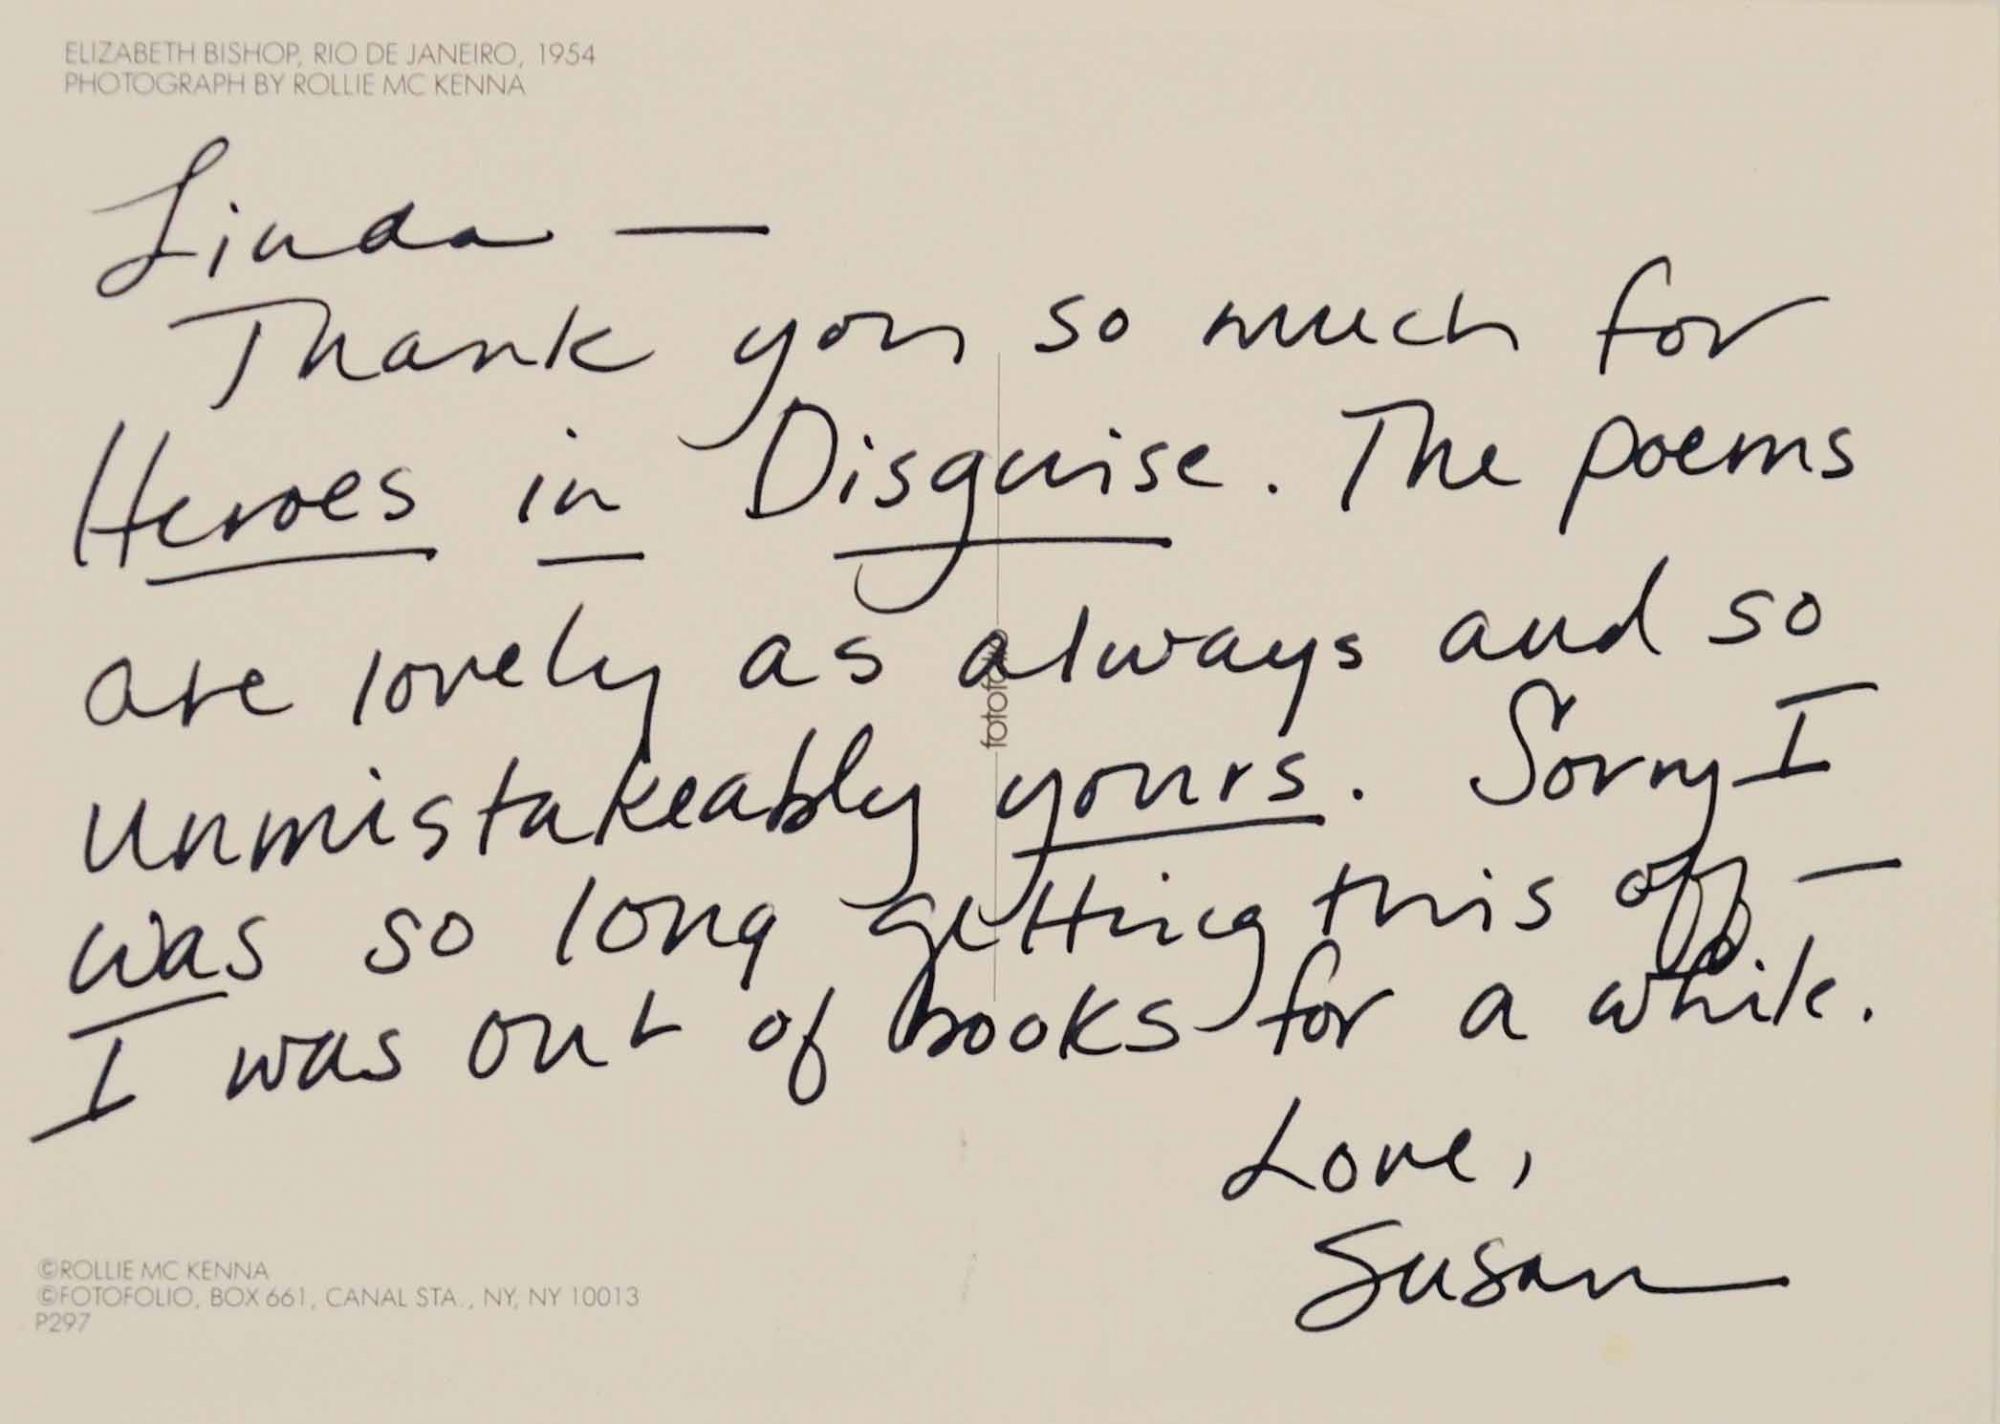 ELIZABETH BISHOP, RIO DE JANEIRO, 1954
PHOTOGRAPH BY ROLLIE MC KENNA
Linda —
Thank you so much for
Heroes in Disguise. The poems
are lovely as always and so
unmistakeably yours. Sorry I
was so long getting this off —
I was out of books for a while.
Love,
Susan
fotofolio
©ROLLIE MC KENNA
©FOTOFOLIO, BOX 661, CANAL STA., NY, NY 10013
P297